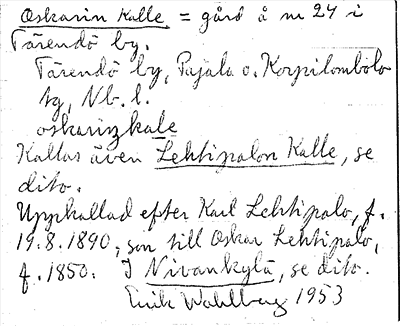 Oskarin Kalle = gård å nr 24 i
Tärendö by.
Tärendö by, Pajala o. Korpilombolo
tg, Nb. l.
oskarinkale
Kallas även Lehtipalon Kalle, se
dito.
Uppkallad efter Karl Lehtipalo, f.
19.8.1890, son till Oskar Lehtipalo,
f. 1850. I Nivankylä, se dito.
Erik Wahlberg 1953